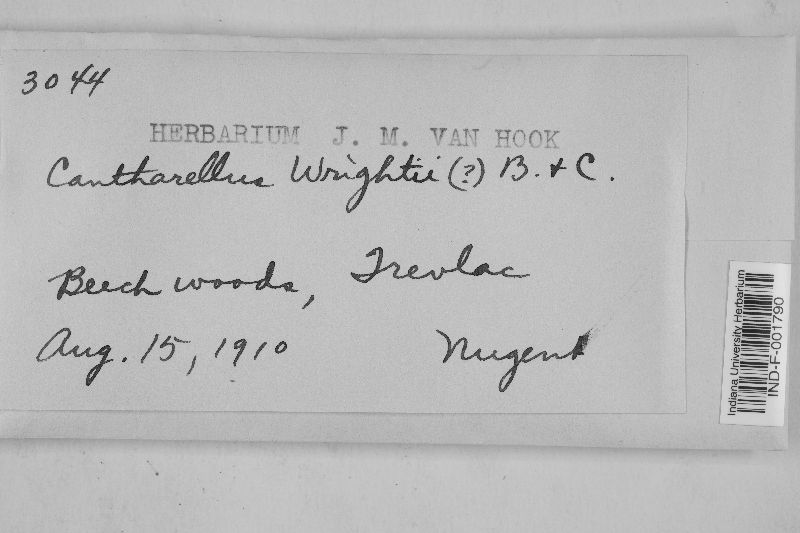 3044
HERBARIUM J. M. VAN HOOK
Cantharellus Wrightii (?) B. & C.
Beech woods, Trevlac
Aug. 15, 1910 Nugent
Indiana University Herbarium
IND-F-001790